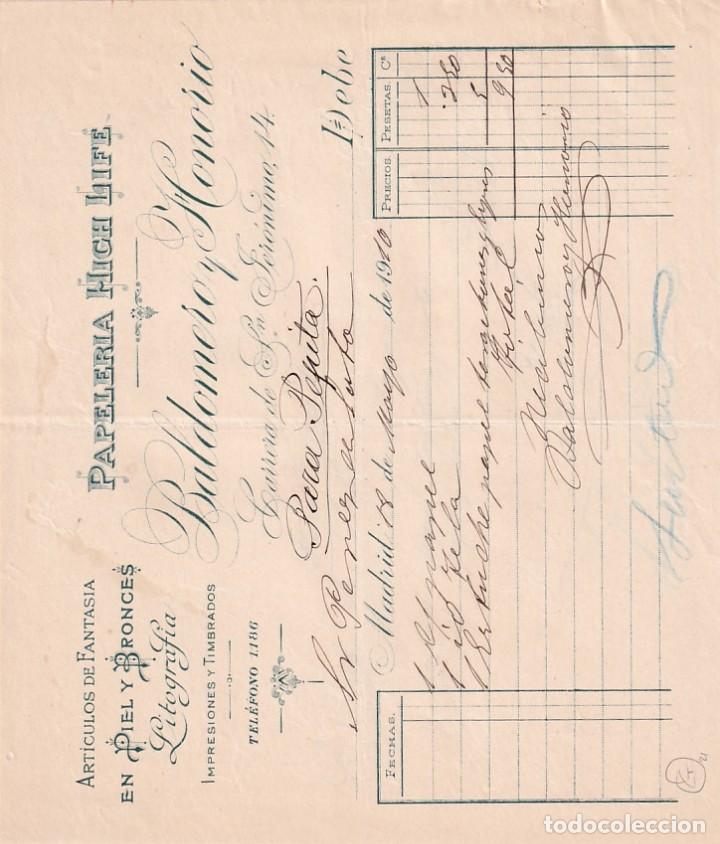 ARTÍCULOS DE FANTASIA
EN PIEL Y BRONCES
Litografía
IMPRESIONES Y TIMBRADOS
TELÉFONO 1.186
PAPELERIA HIGH LIFE
Baldomero y Honorio
Carrera de Sn. Jerónimo, 14.
Para Pepita.
Sr Perez de Soto Debe
Madrid 18 de Mayo de 1910
FECHAS. PRECIOS. PESETAS. Cs
1 papel 1
1 id tela 2 50
1 Estuche papel tarjetones y 5
Total 9 50
Recibimos
Baldomero y Honorio
todocoleccion